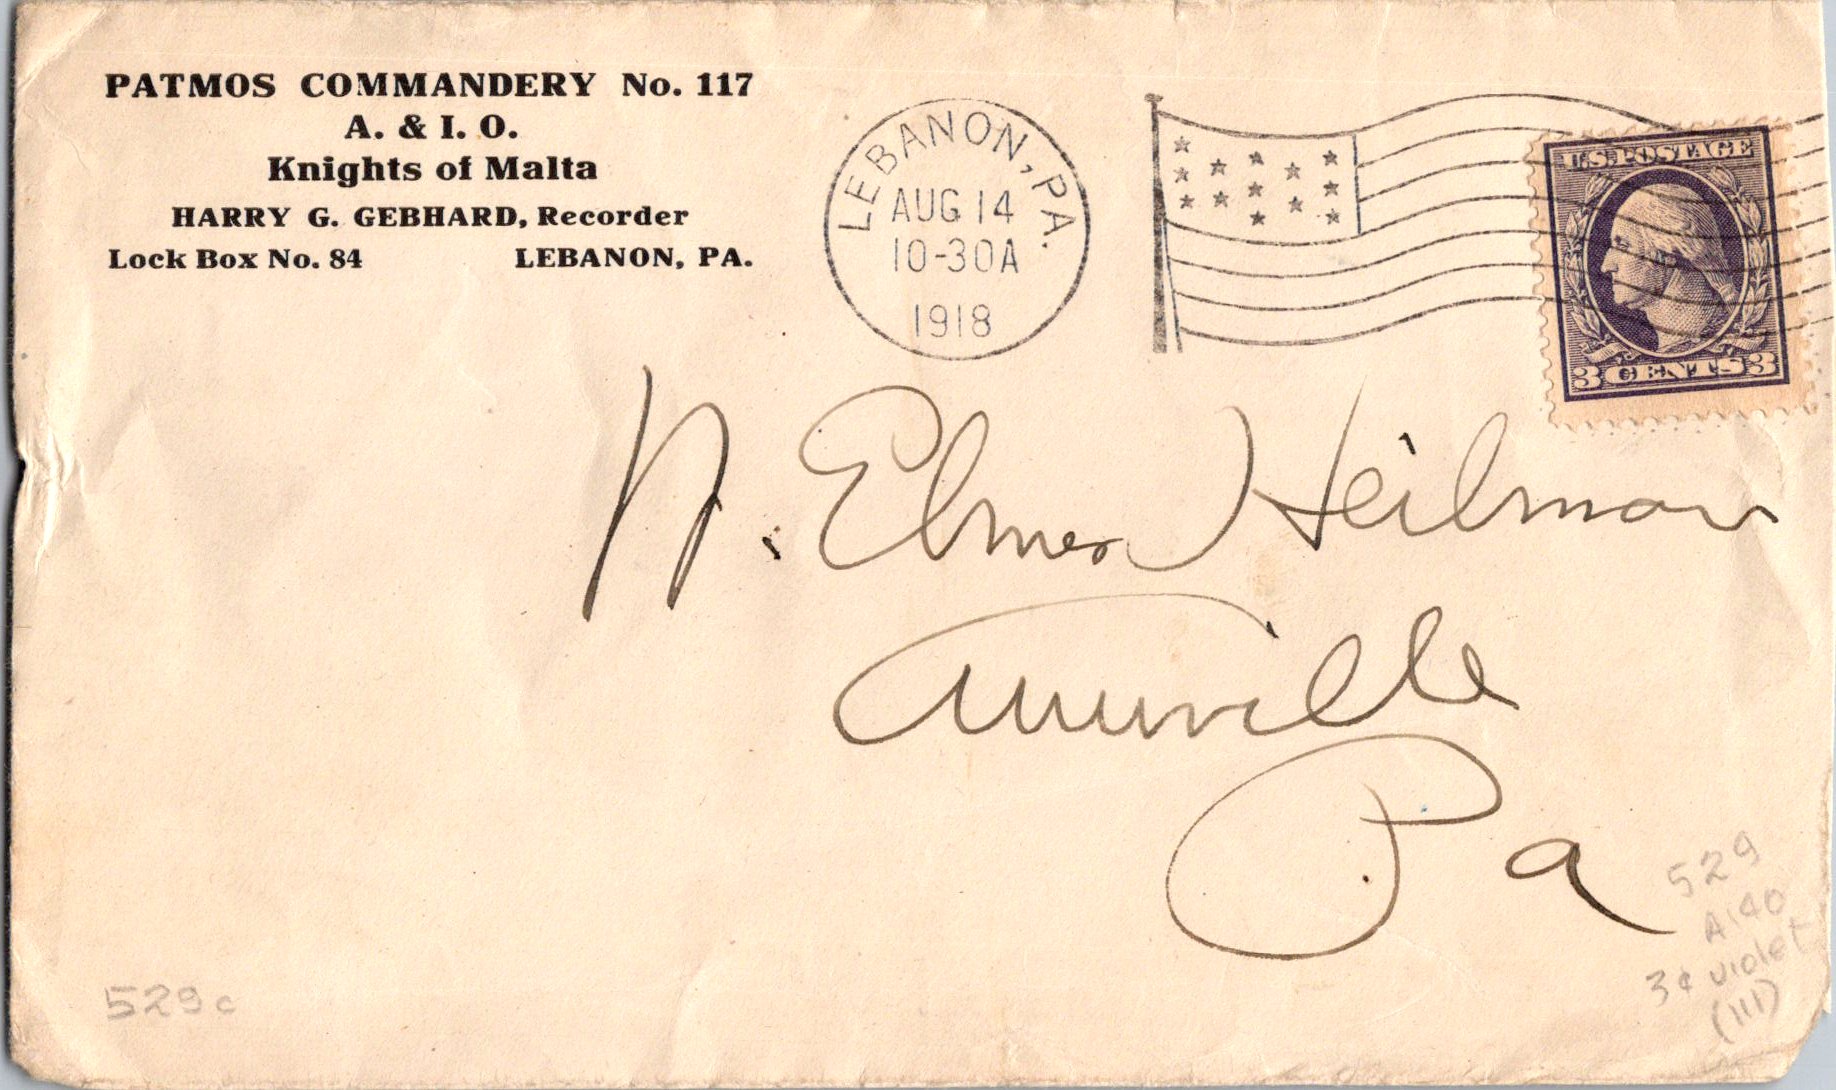 PATMOS COMMANDERY No. 117
A. & I. O.
Knights of Malta
HARRY G. GEBHARD, Recorder
Lock Box No. 84 LEBANON, PA.
LEBANON, PA.
AUG 14
10-30A
1918
U.S. POSTAGE
3 CENTS 3
N. Elmer Heilman
Annville
Pa
529
A140
3¢ violet
(III)
529c